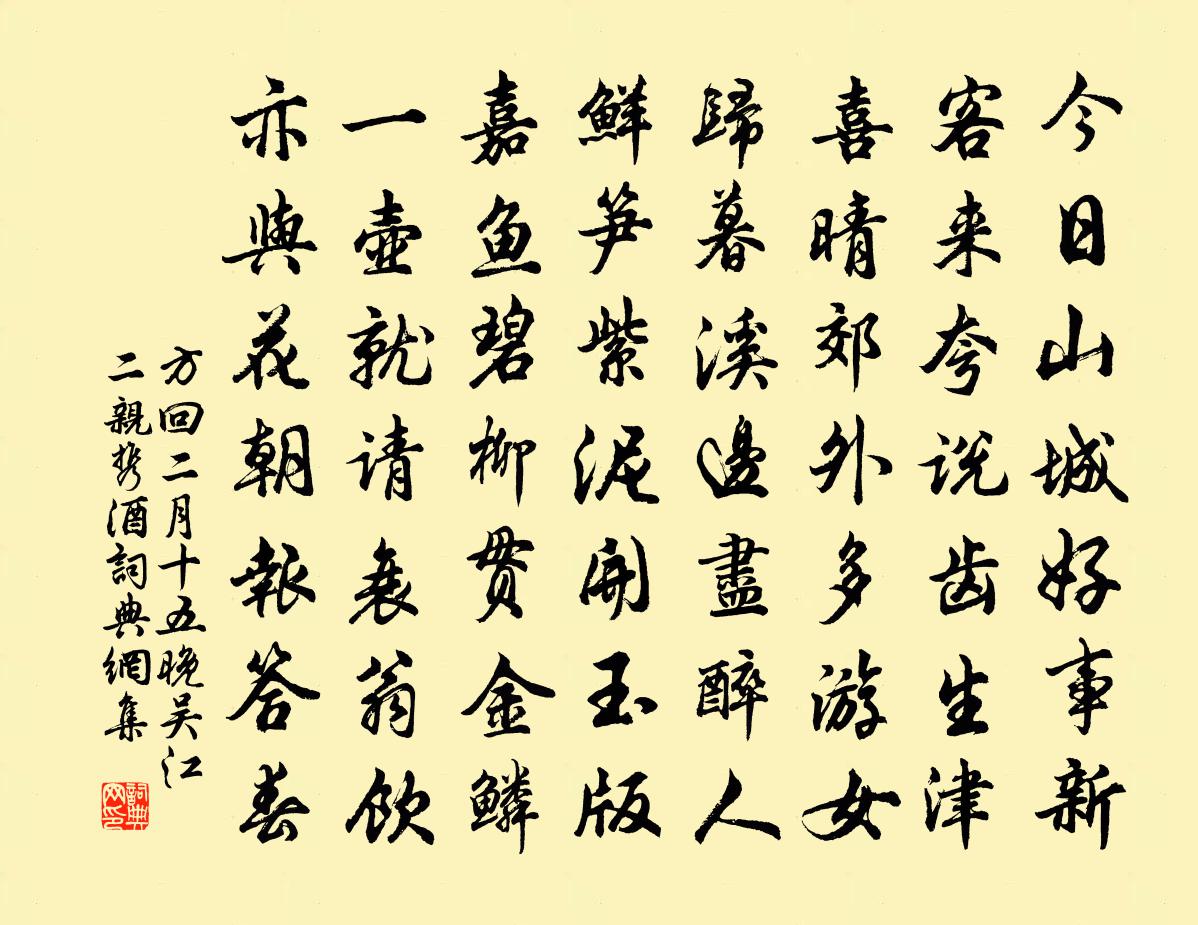 今日山城好事新
客来夸说齿生津
喜晴郊外多游女
歸暮溪邊盡醉人
鮮笋紫泥開玉版
嘉鱼碧柳贯金鳞
一壶就请衰翁饮
亦與花朝報答春
方回二月十五晚吴江
二親携酒詞典網集
詞典网印